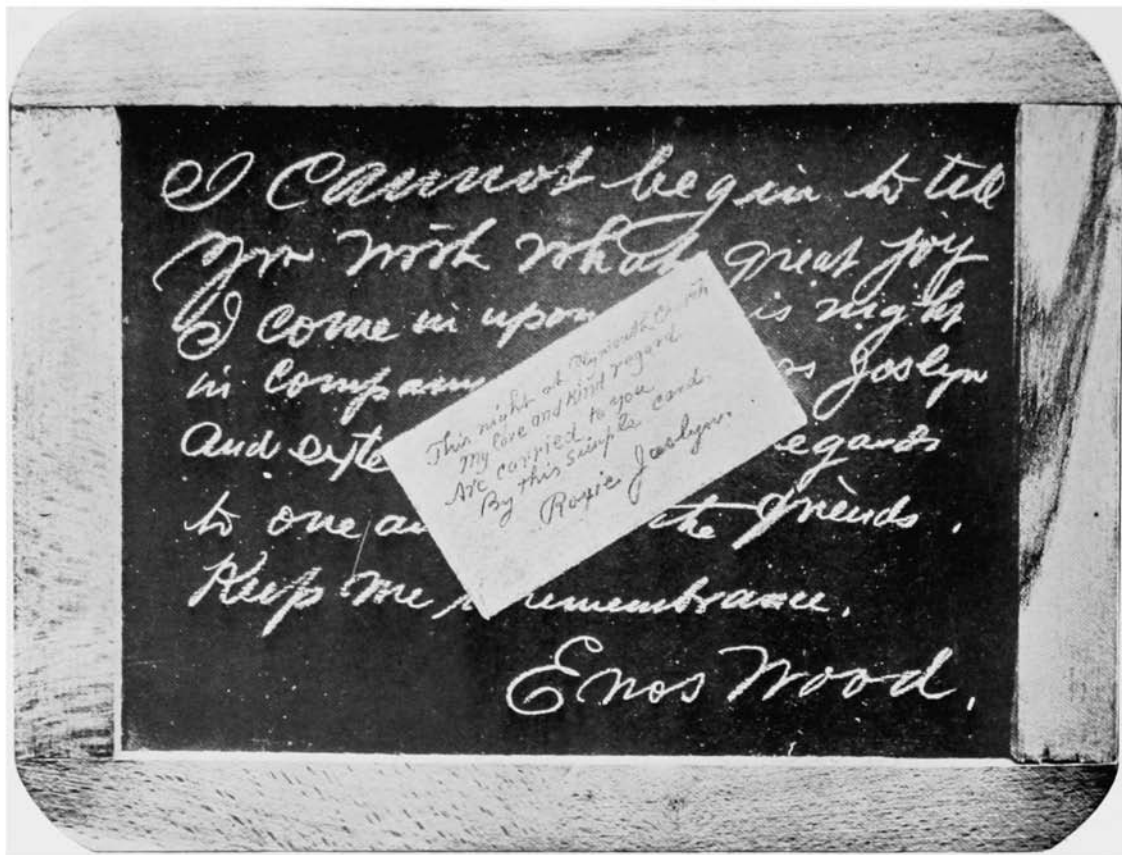 I cannot begin to tell
you with what great joy
I come in upon is night
in company Joslyn
and exte egards
to one an the friends.
Keep me remembrance.
Enos Wood.
This night at Plymouth Church
My love and kind regard
Are carried to you
By this simple card.
Roxie Joslyn.